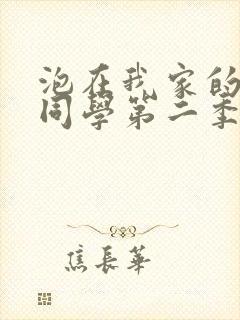 泡在我家的
同學第二季
焦長華